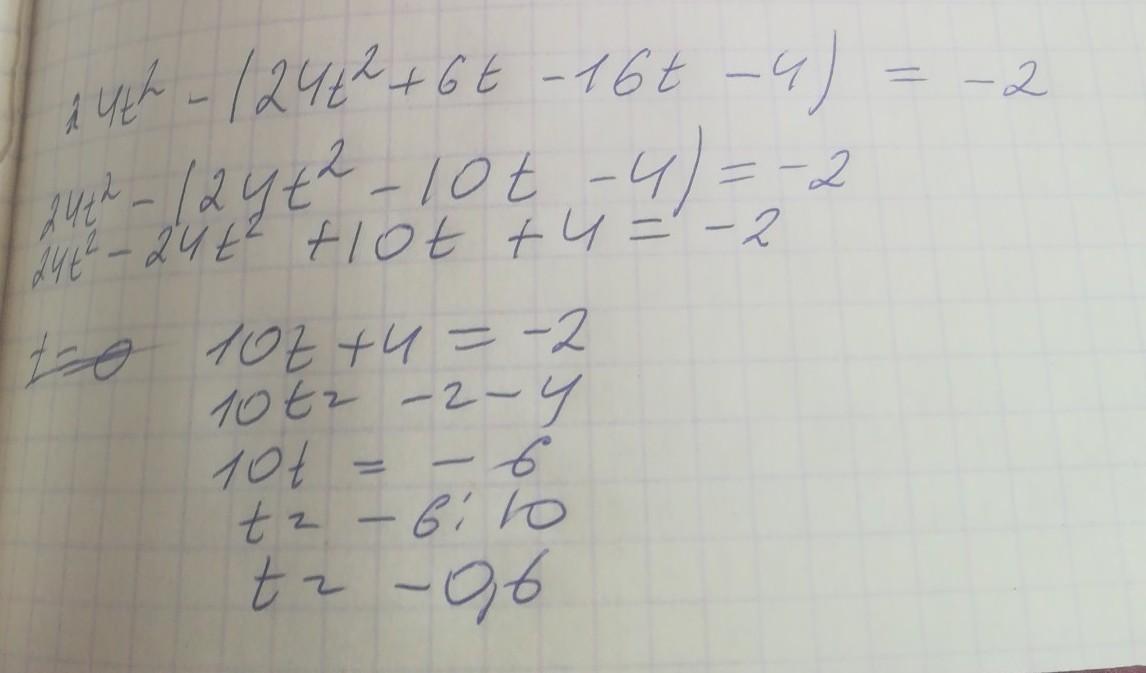 24t² - (24t² + 6t - 16t - 4) = -2
24t² - (24t² - 10t - 4) = -2
24t² - 24t² + 10t + 4 = -2
10t + 4 = -2
10t = -2 - 4
10t = - 6
t = - 6 : 10
t = - 0,6